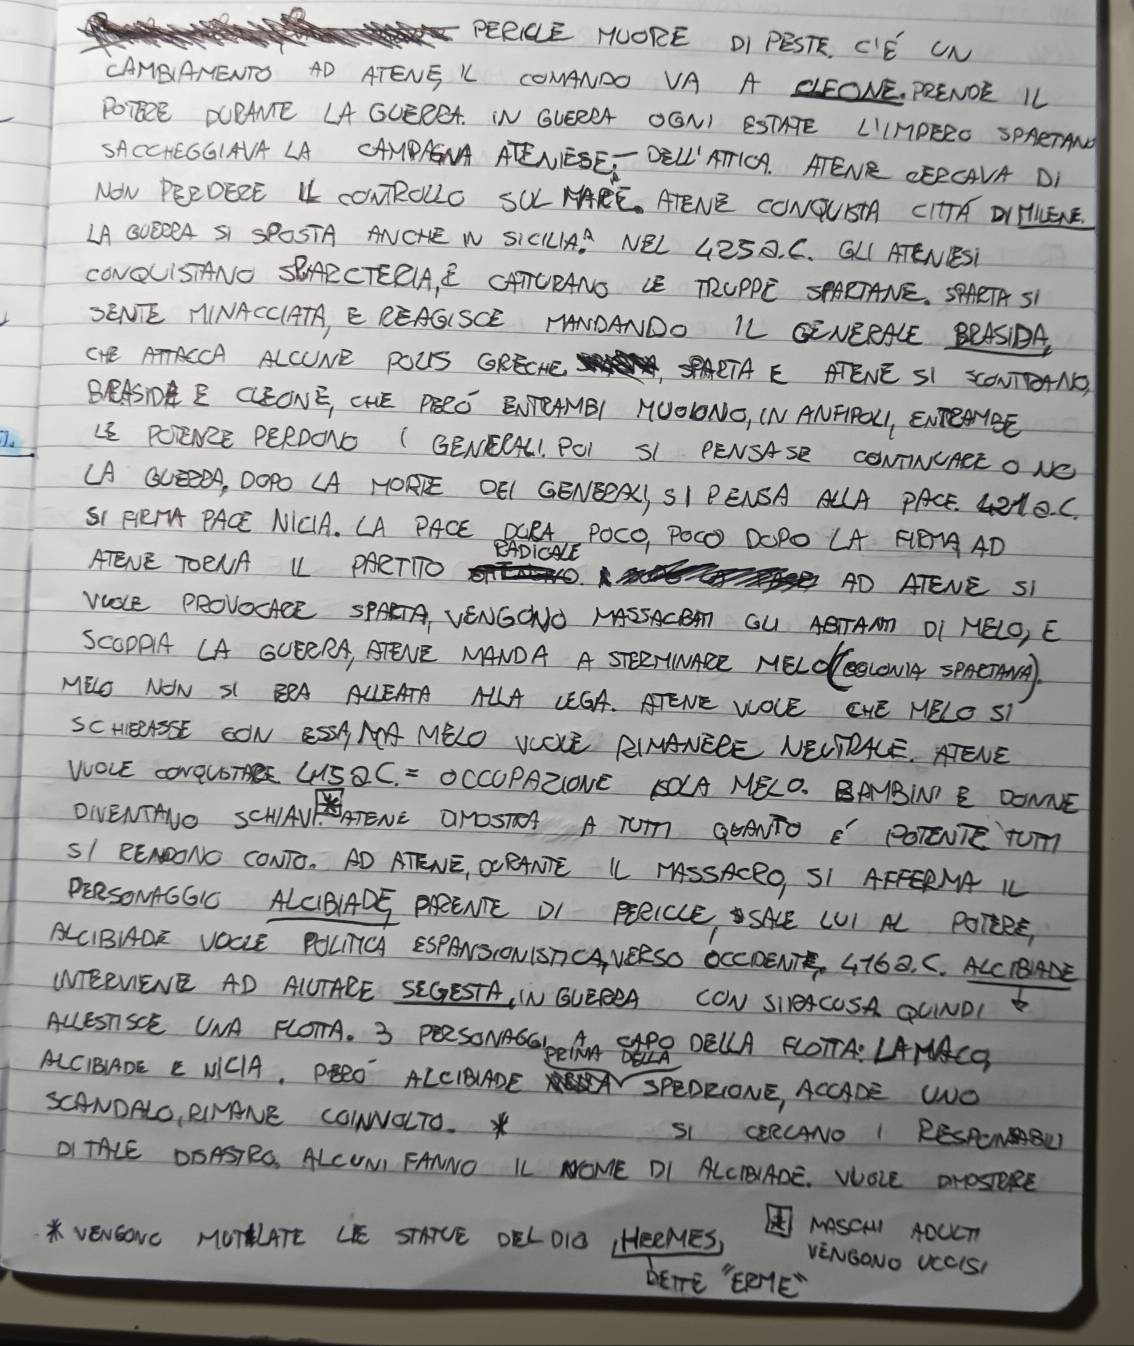 PERICLE MUORE DI PESTE. C'È UN
CAMBIAMENTO AD ATENE, IL COMANDO VA A CLEONE. PRENDE IL
POTERE DURANTE LA GUERRA. IN GUERRA OGNI ESTATE L'IMPERO SPARTANO
SACCHEGGIAVA LA CAMPAGNA ATENIESE: DELL'ATTICA. ATENE CERCAVA DI
NON PERDERE IL CONTROLLO SUL MARE. ATENE CONQUISTA CITTÁ DI MILENE.
LA GUERRA SI SPOSTA ANCHE IN SICILIA. NEL 425 a.C. GLI ATENIESI
CONQUISTANO SPARCTERIA, E CATTURANO LE TRUPPE SPARTANE. SPARTA SI
SENTE MINACCIATA, E REAGISCE MANDANDO IL GENERALE BRASIDA,
CHE ATTACCA ALCUNE POLIS GRECHE, SPARTA E ATENE SI SCONTRANO,
BRASIDA E CLEONE, CHE PERÓ ENTRAMBI MUOIONO, IN ANFIPOLI, ENTRAMBE
LE POTENZE PERDONO I GENERALI. POI SI PENSA SE CONTINUARE O NO
LA GUERRA, DOPO LA MORTE DEI GENERALI, SI PENSA ALLA PACE. 421 a.C.
SI FIRMA PACE NICIA. LA PACE DURA POCO, POCO DOPO LA FIRMA, AD
ATENE TORNA IL PARTITO RADICALE AD ATENE SI
VUOLE PROVOCARE SPARTA, VENGONO MASSACRATI GLI ABITANTI DI MELO, E
SCOPPIA LA GUERRA, ATENE MANDA A STERMINARE MELO (COLONIA SPARTANA).
MELO NON SI ERA ALLEATA ALLA LEGA. ATENE VUOLE CHE MELO SI
SCHIERASSE CON ESSA, MA MELO VUOLE RIMANERE NEUTRALE. ATENE
VUOLE CONQUISTARE. 415 a.C. = OCCUPAZIONE ISOLA MELO. BAMBINI E DONNE
DIVENTANO SCHIAVI. * ATENE DIMOSTRA A TUTTI QUANTO É POTENTE TUTTI
SI RENDONO CONTO. AD ATENE, DURANTE IL MASSACRO, SI AFFERMA IL
PERSONAGGIO ALCIBIADE, PARENTE DI PERICLE, SALE LUI AL POTERE,
ALCIBIADE VUOLE POLITICA ESPANSIONISTICA, VERSO OCCIDENTE, 416 a.C. ALCIBIADE
INTERVIENE AD AIUTARE SEGESTA, IN GUERRA CON SIRACUSA QUINDI
ALLESTISCE UNA FLOTTA. 3 PERSONAGGI A CAPO DELLA FLOTTA: LAMACO,
ALCIBIADE E NICIA. PERÓ ALCIBIADE PRIMA DELLA SPEDRIONE, ACCADE UNO
SCANDALO, RIMANE COINVOLTO. * SI CERCANO I RESPONSABILI
DI TALE DISASTRO, ALCUNI FANNO IL NOME DI ALCIBIADE. VUOLE DIMOSTRARE
* VENGONO MUTILATE LE STATUE DEL DIO HERMES,
DETTE "ERME"
* MASCHI ADULTI
VENGONO UCCISI